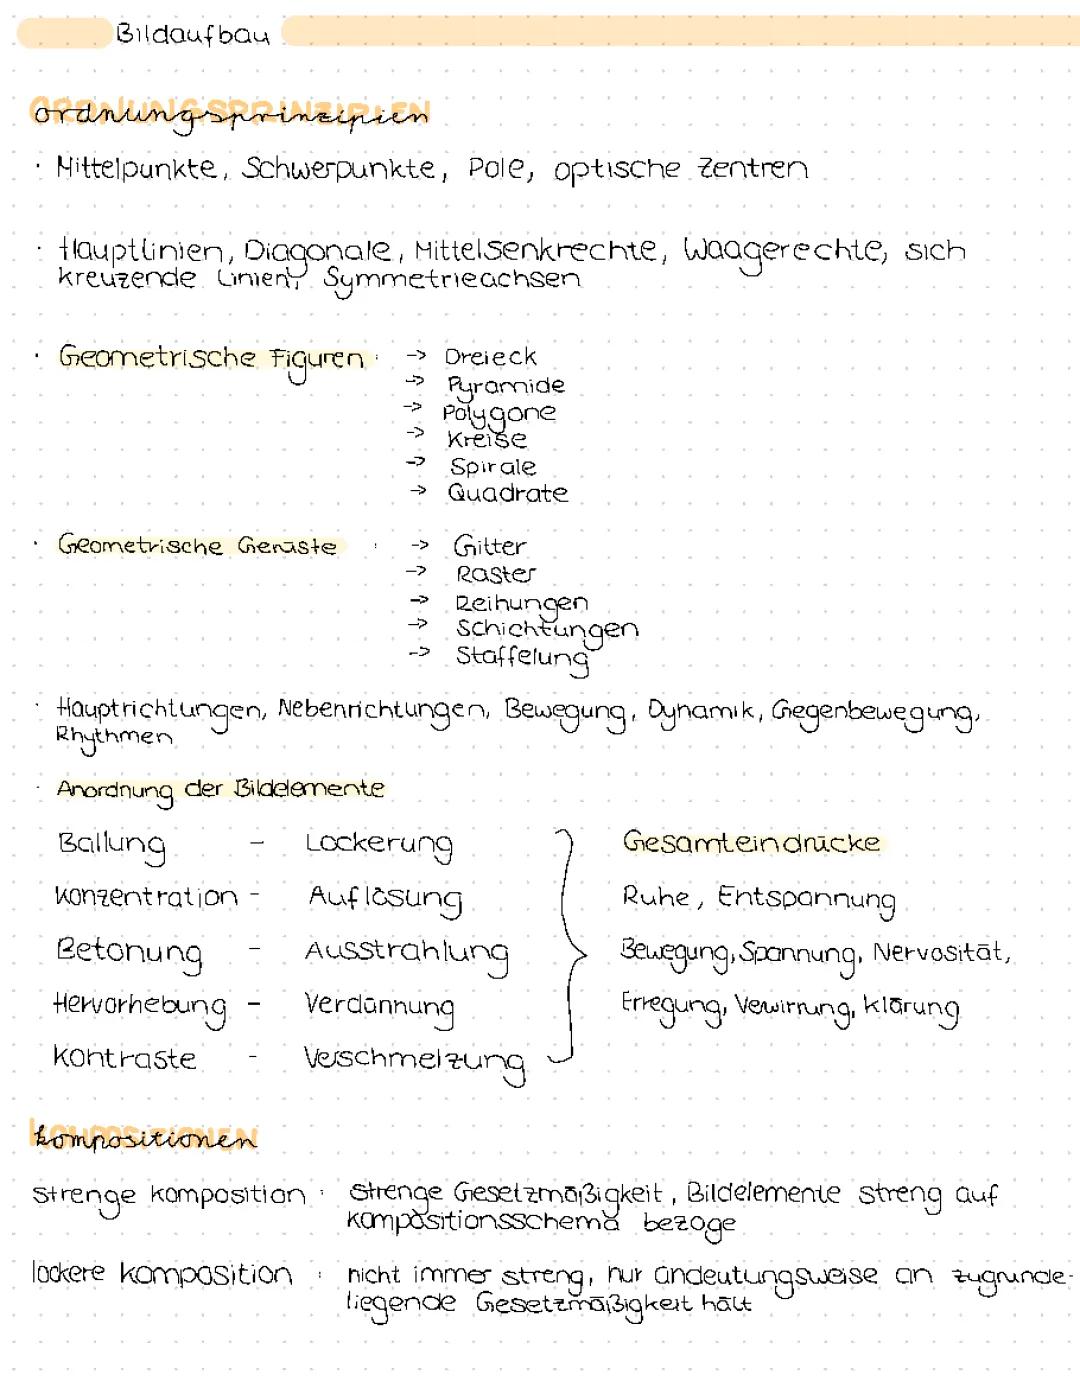 Bildaufbau
ORDNUNGSPRINZIPIEN
ordnungsprinzipien
· Mittelpunkte, Schwerpunkte, Pole, optische Zentren
· Hauptlinien, Diagonale, Mittelsenkrechte, Waagerechte, sich
kreuzende Linien, Symmetrieachsen
· Geometrische Figuren: -> Dreieck
-> Pyramide
-> Polygone
-> Kreise
-> Spirale
-> Quadrate
· Geometrische Gerüste : -> Gitter
-> Raster
-> Reihungen
-> Schichtungen
-> Staffelung
· Hauptrichtungen, Nebenrichtungen, Bewegung, Dynamik, Gegenbewegung,
Rhythmen
· Anordnung der Bildelemente
Ballung - Lockerung } Gesamteindrücke
Konzentration - Auflösung Ruhe, Entspannung
Betonung - Ausstrahlung Bewegung, Spannung, Nervosität,
Hervorhebung - Verdünnung Erregung, Verwirrung, Klärung
Kontraste - Verschmelzung
KOMPOSITIONEN
kompositionen
strenge Komposition : strenge Gesetzmäßigkeit, Bildelemente streng auf
Kompositionsschema bezoge
lockere Komposition : nicht immer streng, nur andeutungsweise an zugrunde-
liegende Gesetzmäßigkeit hält